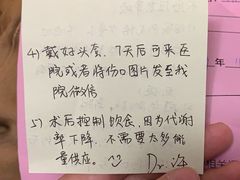 4) 戴好头套、7天后可来医
院或者将伤口图片发至我
院微信
5) 术后控制饮食,因为代谢
率下降,不需要太多能
量供应。
Dr.许